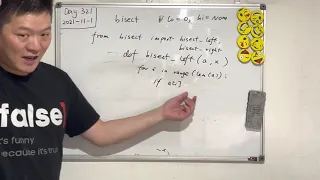 Day 321
2021-11-1
bisect # lo = 0, hi = None
from bisect import bisect_left,
bisect_right
def bisect_left (a, x)
for i in range (len(a)):
if a[i]
false
funny because
it's true